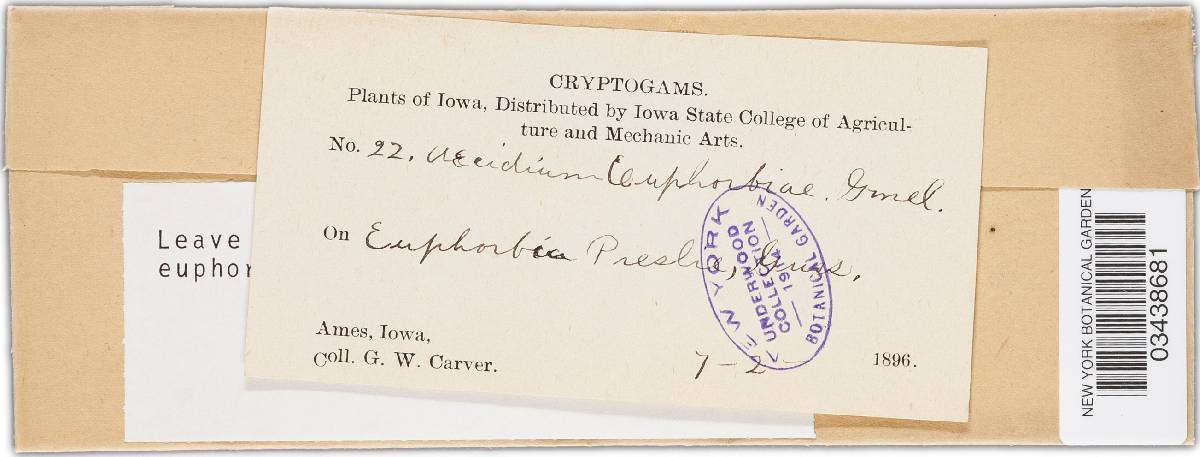 CRYPTOGAMS.
Plants of Iowa, Distributed by Iowa State College of Agricul-
ture and Mechanic Arts.
No. 22. Aecidium Euphorbiae. Gmel.
On Euphorbia Preslii, Guss.
Ames, Iowa,
Coll. G. W. Carver.
7-2 1896.
NEW YORK
UNDERWOOD
COLLECTION
BOTANICAL GARDEN
Leave
euphor
NEW YORK BOTANICAL GARDEN
03438681